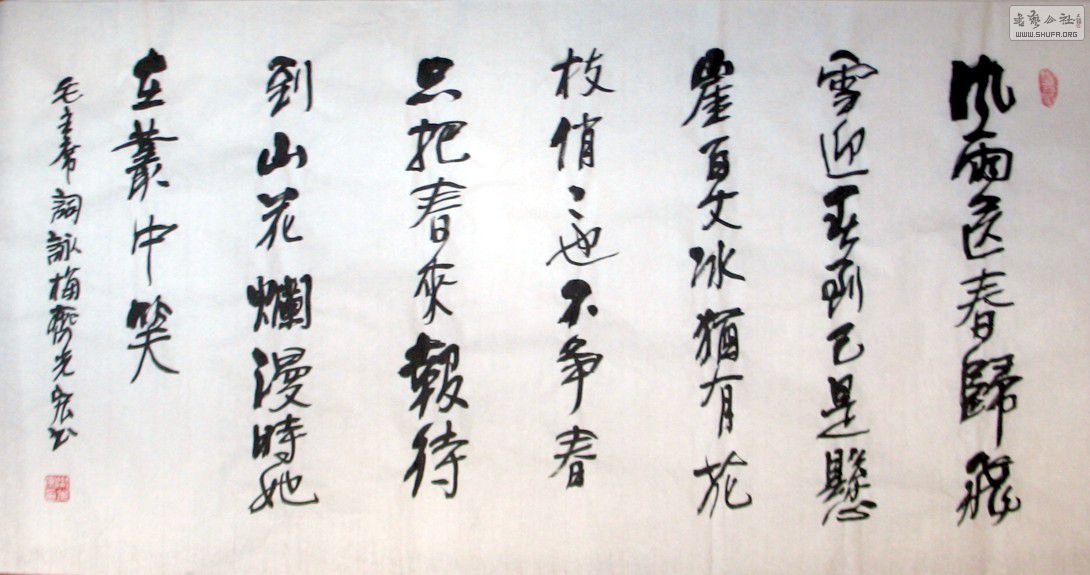 風雨送春歸飛
雪迎春到已是懸
崖百丈冰猶有花
枝俏〻也不争春
只把春來報待
到山花爛漫時她
在叢中笑
毛主席詞詠梅光宏书
书藝公社
WWW.SHUFA.ORG